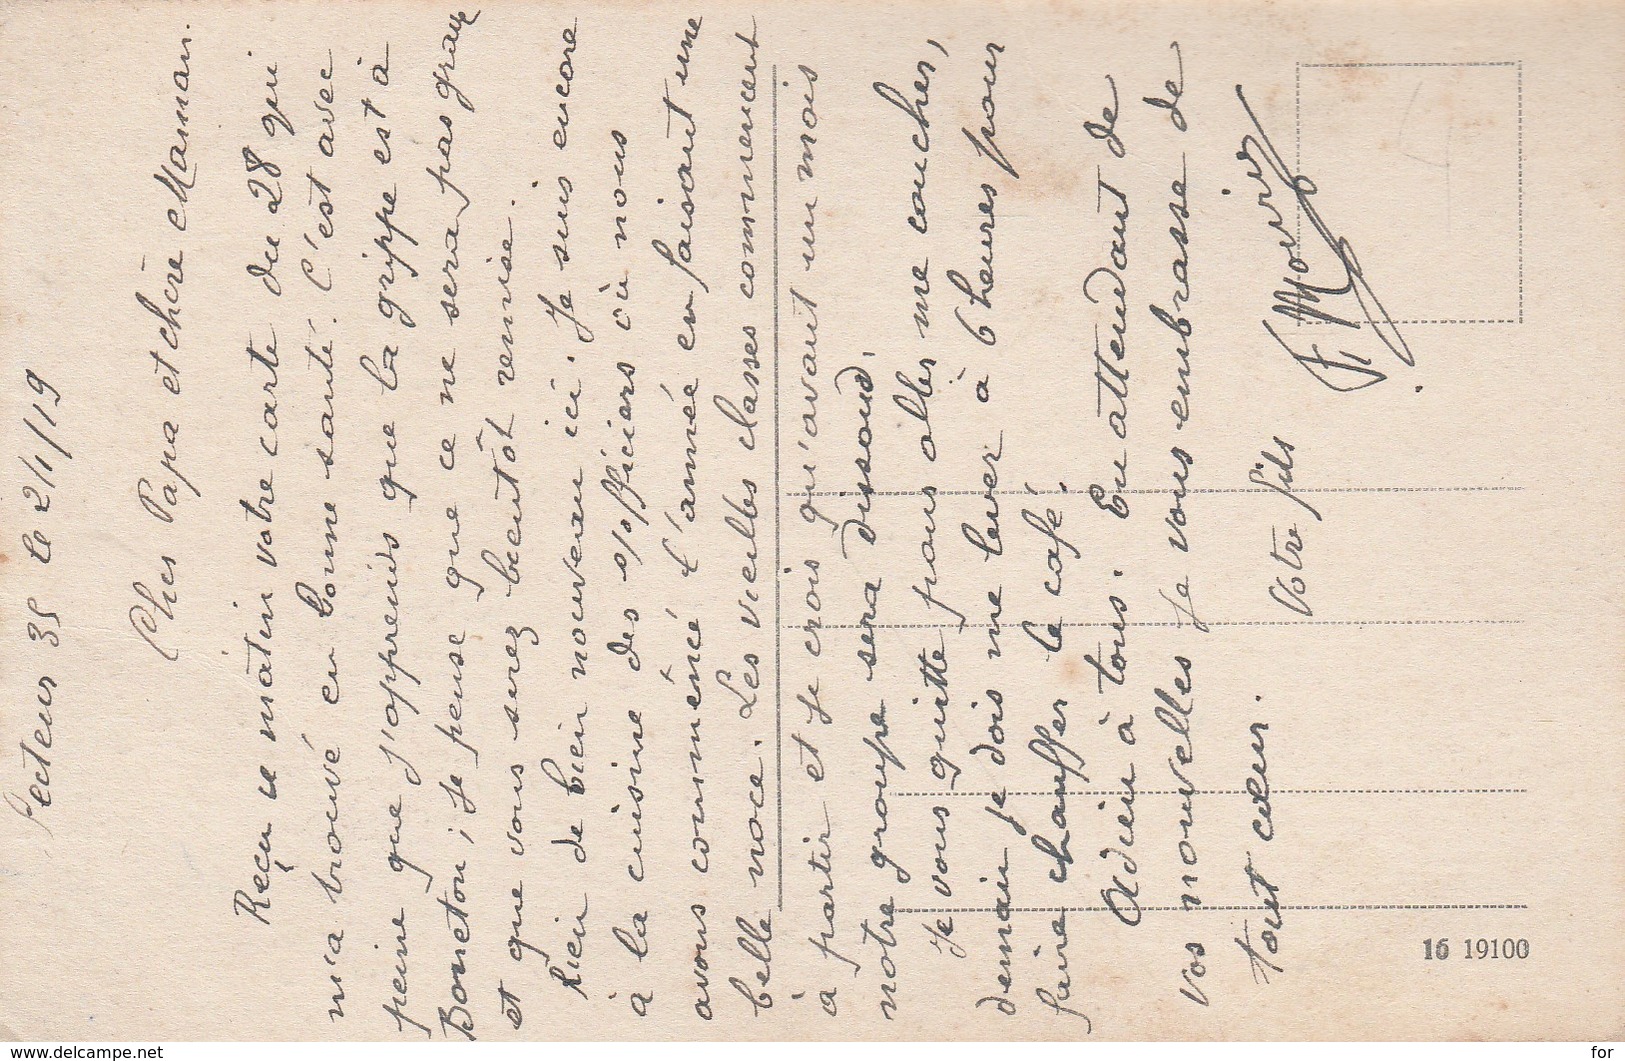 Secteur 35 le 2/1/19
Cher Papa et chère Maman.
Reçu ce matin votre carte du 28 qui
m'a trouvé en bonne santé. C'est avec
peine que j'apprends que la grippe est à
Boncton; je pense que ce ne sera pas grave
et que vous serez bientôt remise.
Rien de bien nouveau ici. Je suis encore
à la cuisine des s/officiers où nous
avons commencé l'année en faisant une
belle noce. Les vieilles classes commencent
à partir et je crois qu'avant un mois
notre groupe sera dissoud.
Je vous quitte pour aller me coucher,
demain je dois me lever à 6 heures pour
faire chauffer le café.
Adieu à tous. En attendant de
vos nouvelles je vous embrasse de
tout cœur. Votre fils
16 19100
www.delcampe.net
for